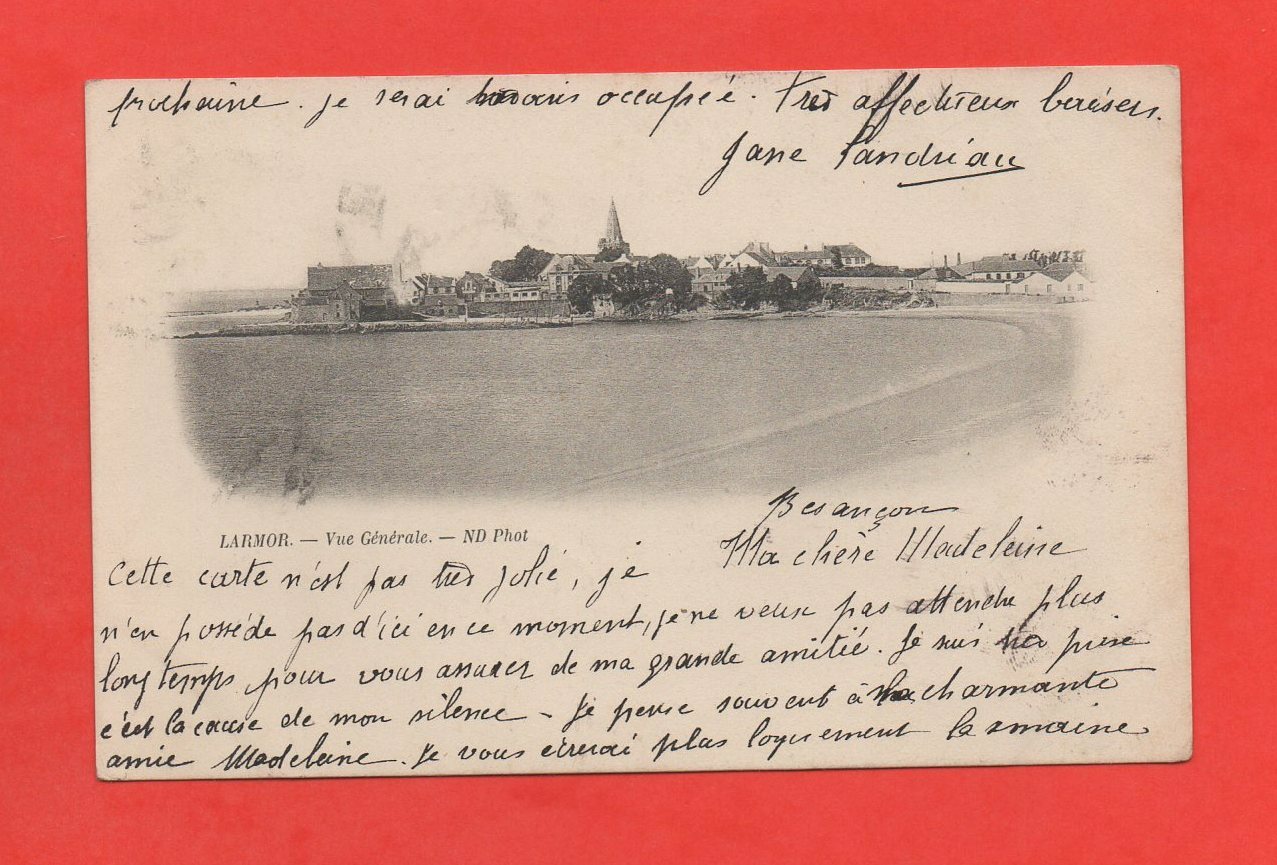 prochaine. je serai moins occupée. Très affectueux baisers.
Jane Landriau
LARMOR. — Vue Générale. — ND Phot
Besançon
Ma chère Madeleine
Cette carte n'est pas très jolie, je
n'en possède pas d'ici en ce moment, je ne veux pas attendre plus
longtemps pour vous assurer de ma grande amitié. Je suis très prise
c'est la cause de mon silence - Je pense souvent à la charmante
amie Madeleine. Je vous écrirai plus longuement la semaine